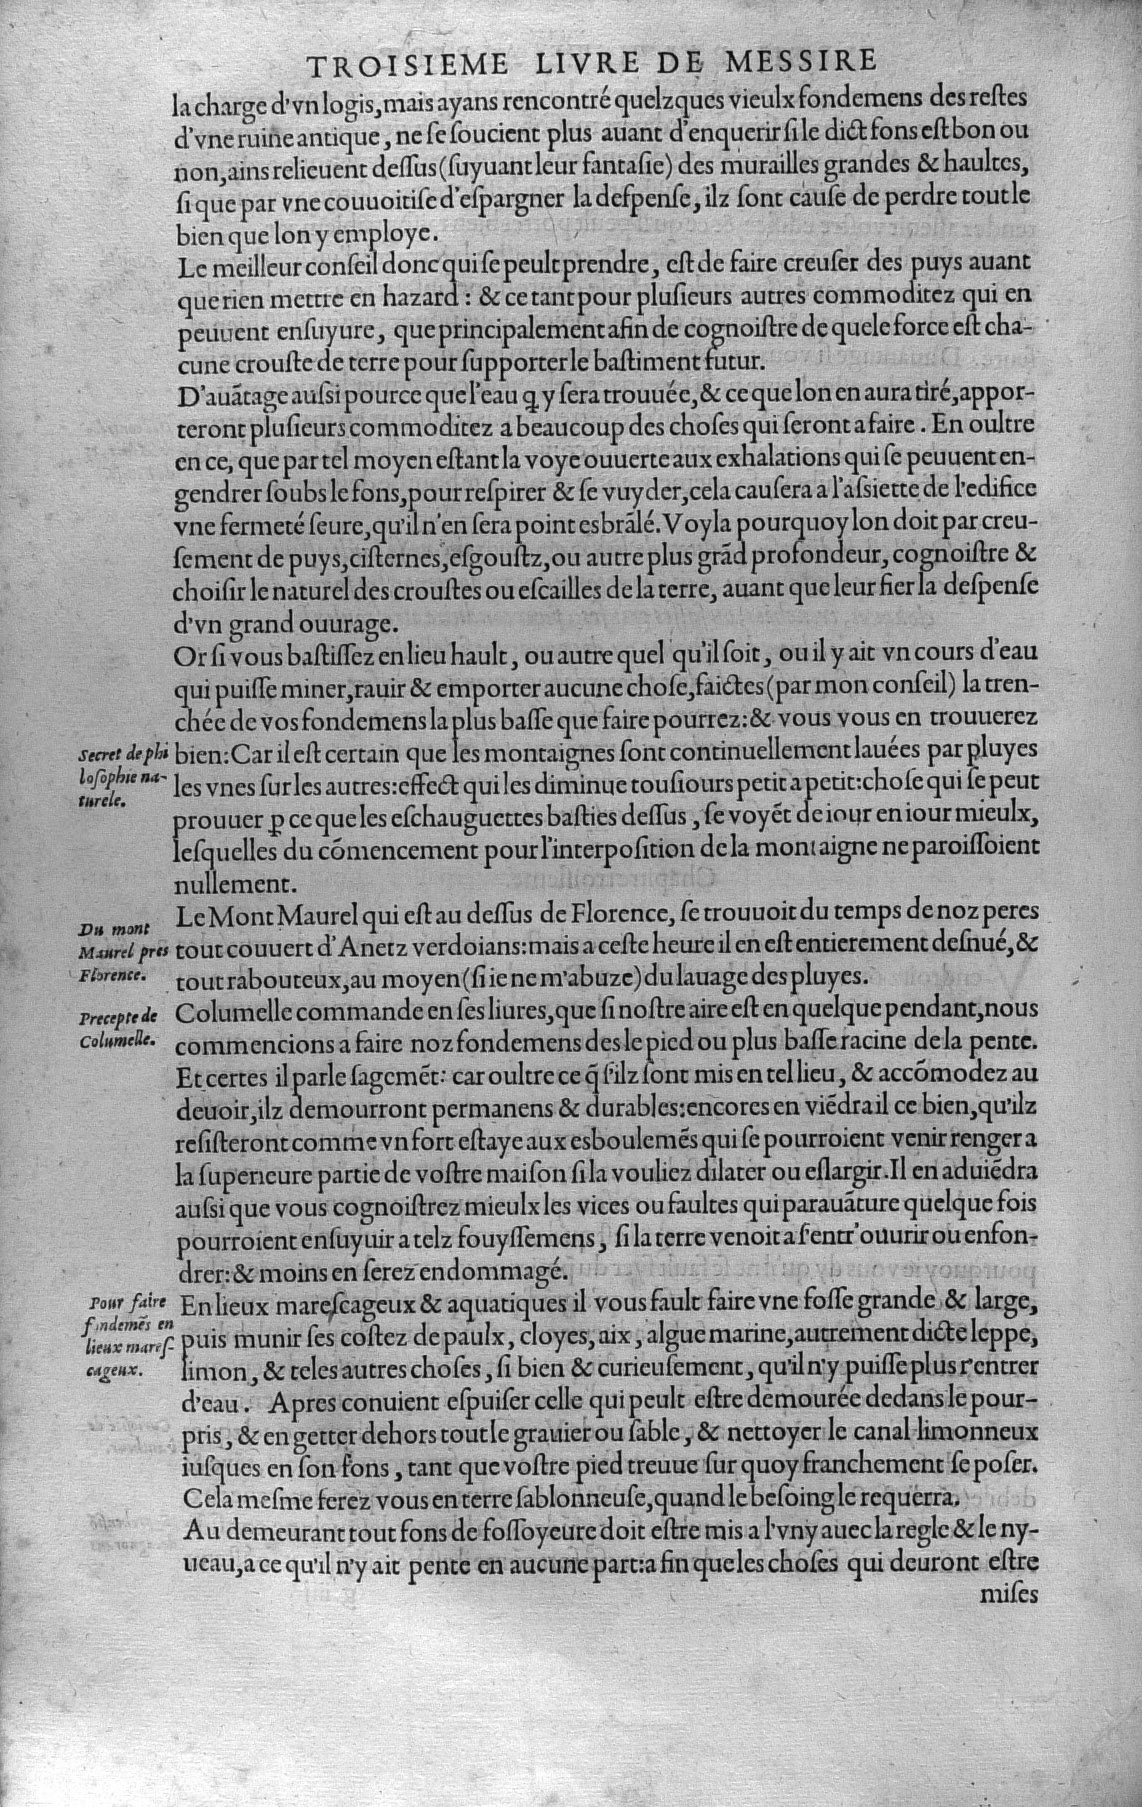 TROISIEME LIVRE DE MESSIRE
la charge d'vn logis, mais ayans rencontré quelzques vieulx fondemens des restes
d'vne ruine antique, ne se soucient plus auant d'enquerir si le dict fons est bon ou
non, ains relieuent dessus (suyuant leur fantasie) des murailles grandes & haultes,
si que par vne couuoitise d'espargner la despense, ilz sont cause de perdre tout le
bien que lon y employe.
Le meilleur conseil donc qui se peult prendre, est de faire creuser des puys auant
que rien mettre en hazard : & ce tant pour plusieurs autres commoditez qui en
peuuent ensuyure, que principalement afin de cognoistre de quele force est cha-
cune crouste de terre pour supporter le bastiment futur.
D'auātage aussi pource que l'eau q̨ y sera trouuée, & ce que lon en aura tiré, appor-
teront plusieurs commoditez a beaucoup des choses qui seront a faire. En oultre
en ce, que par tel moyen estant la voye ouuerte aux exhalations qui se peuuent en-
gendrer soubs le fons, pour respirer & se vuyder, cela causera a l'assiette de l'edifice
vne fermeté seure, qu'il n'en sera point esbrālé. Voyla pourquoy lon doit par creu-
sement de puys, cisternes, esgoustz, ou autre plus grād profondeur, cognoistre &
choisir le naturel des croustes ou escailles de la terre, auant que leur fier la despense
d'vn grand ouurage.
Or si vous bastissez en lieu hault, ou autre quel qu'il soit, ou il y ait vn cours d'eau
qui puisse miner, rauir & emporter aucune chose, faictes (par mon conseil) la tren-
chée de vos fondemens la plus basse que faire pourrez: & vous vous en trouuerez
Secret de phi
losophie na-
turele.
bien: Car il est certain que les montaignes sont continuellement lauées par pluyes
les vnes sur les autres: effect qui les diminue tousiours petit a petit: chose qui se peut
prouuer ꝑ ce que les eschauguettes basties dessus, se voyēt de iour en iour mieulx,
lesquelles du cōmencement pour l'interposition de la montaigne ne paroissoient
nullement.
Du mont
Maurel pres
Florence.
Le Mont Maurel qui est au dessus de Florence, se trouuoit du temps de noz peres
tout couuert d'Anetz verdoians: mais a ceste heure il en est entierement desnué, &
tout rabouteux, au moyen (si ie ne m'abuze) du lauage des pluyes.
Precepte de
Columelle.
Columelle commande en ses liures, que si nostre aire est en quelque pendant, nous
commencions a faire noz fondemens des le pied ou plus basse racine de la pente.
Et certes il parle sagemēt: car oultre ce q̄ s'ilz sont mis en tel lieu, & accōmodez au
deuoir, ilz demourront permanens & durables: encores en viēdra il ce bien, qu'ilz
resisteront comme vn fort estaye aux esboulemēs qui se pourroient venir renger a
la superieure partie de vostre maison si la vouliez dilater ou eslargir. Il en aduiēdra
aussi que vous cognoistrez mieulx les vices ou faultes qui parauāture quelque fois
pourroient ensuyuir a telz fouyssemens, si la terre venoit a s'entr'ouurir ou enfon-
drer: & moins en serez endommagé.
Pour faire
fondemēs en
lieux mares-
cageux.
En lieux marescageux & aquatiques il vous fault faire vne fosse grande & large,
puis munir ses costez de paulx, cloyes, aix, algue marine, autrement dicte leppe,
limon, & teles autres choses, si bien & curieusement, qu'il n'y puisse plus r'entrer
d'eau. Apres conuient espuiser celle qui peult estre demourée dedans le pour-
pris, & en getter dehors tout le grauier ou sable, & nettoyer le canal limonneux
iusques en son fons, tant que vostre pied treuue sur quoy franchement se poser.
Cela mesme ferez vous en terre sablonneuse, quand le besoing le requerra.
Au demeurant tout fons de fossoyeure doit estre mis a l'vny auec la regle & le ny-
ueau, a ce qu'il n'y ait pente en aucune part: a fin que les choses qui deuront estre
mises